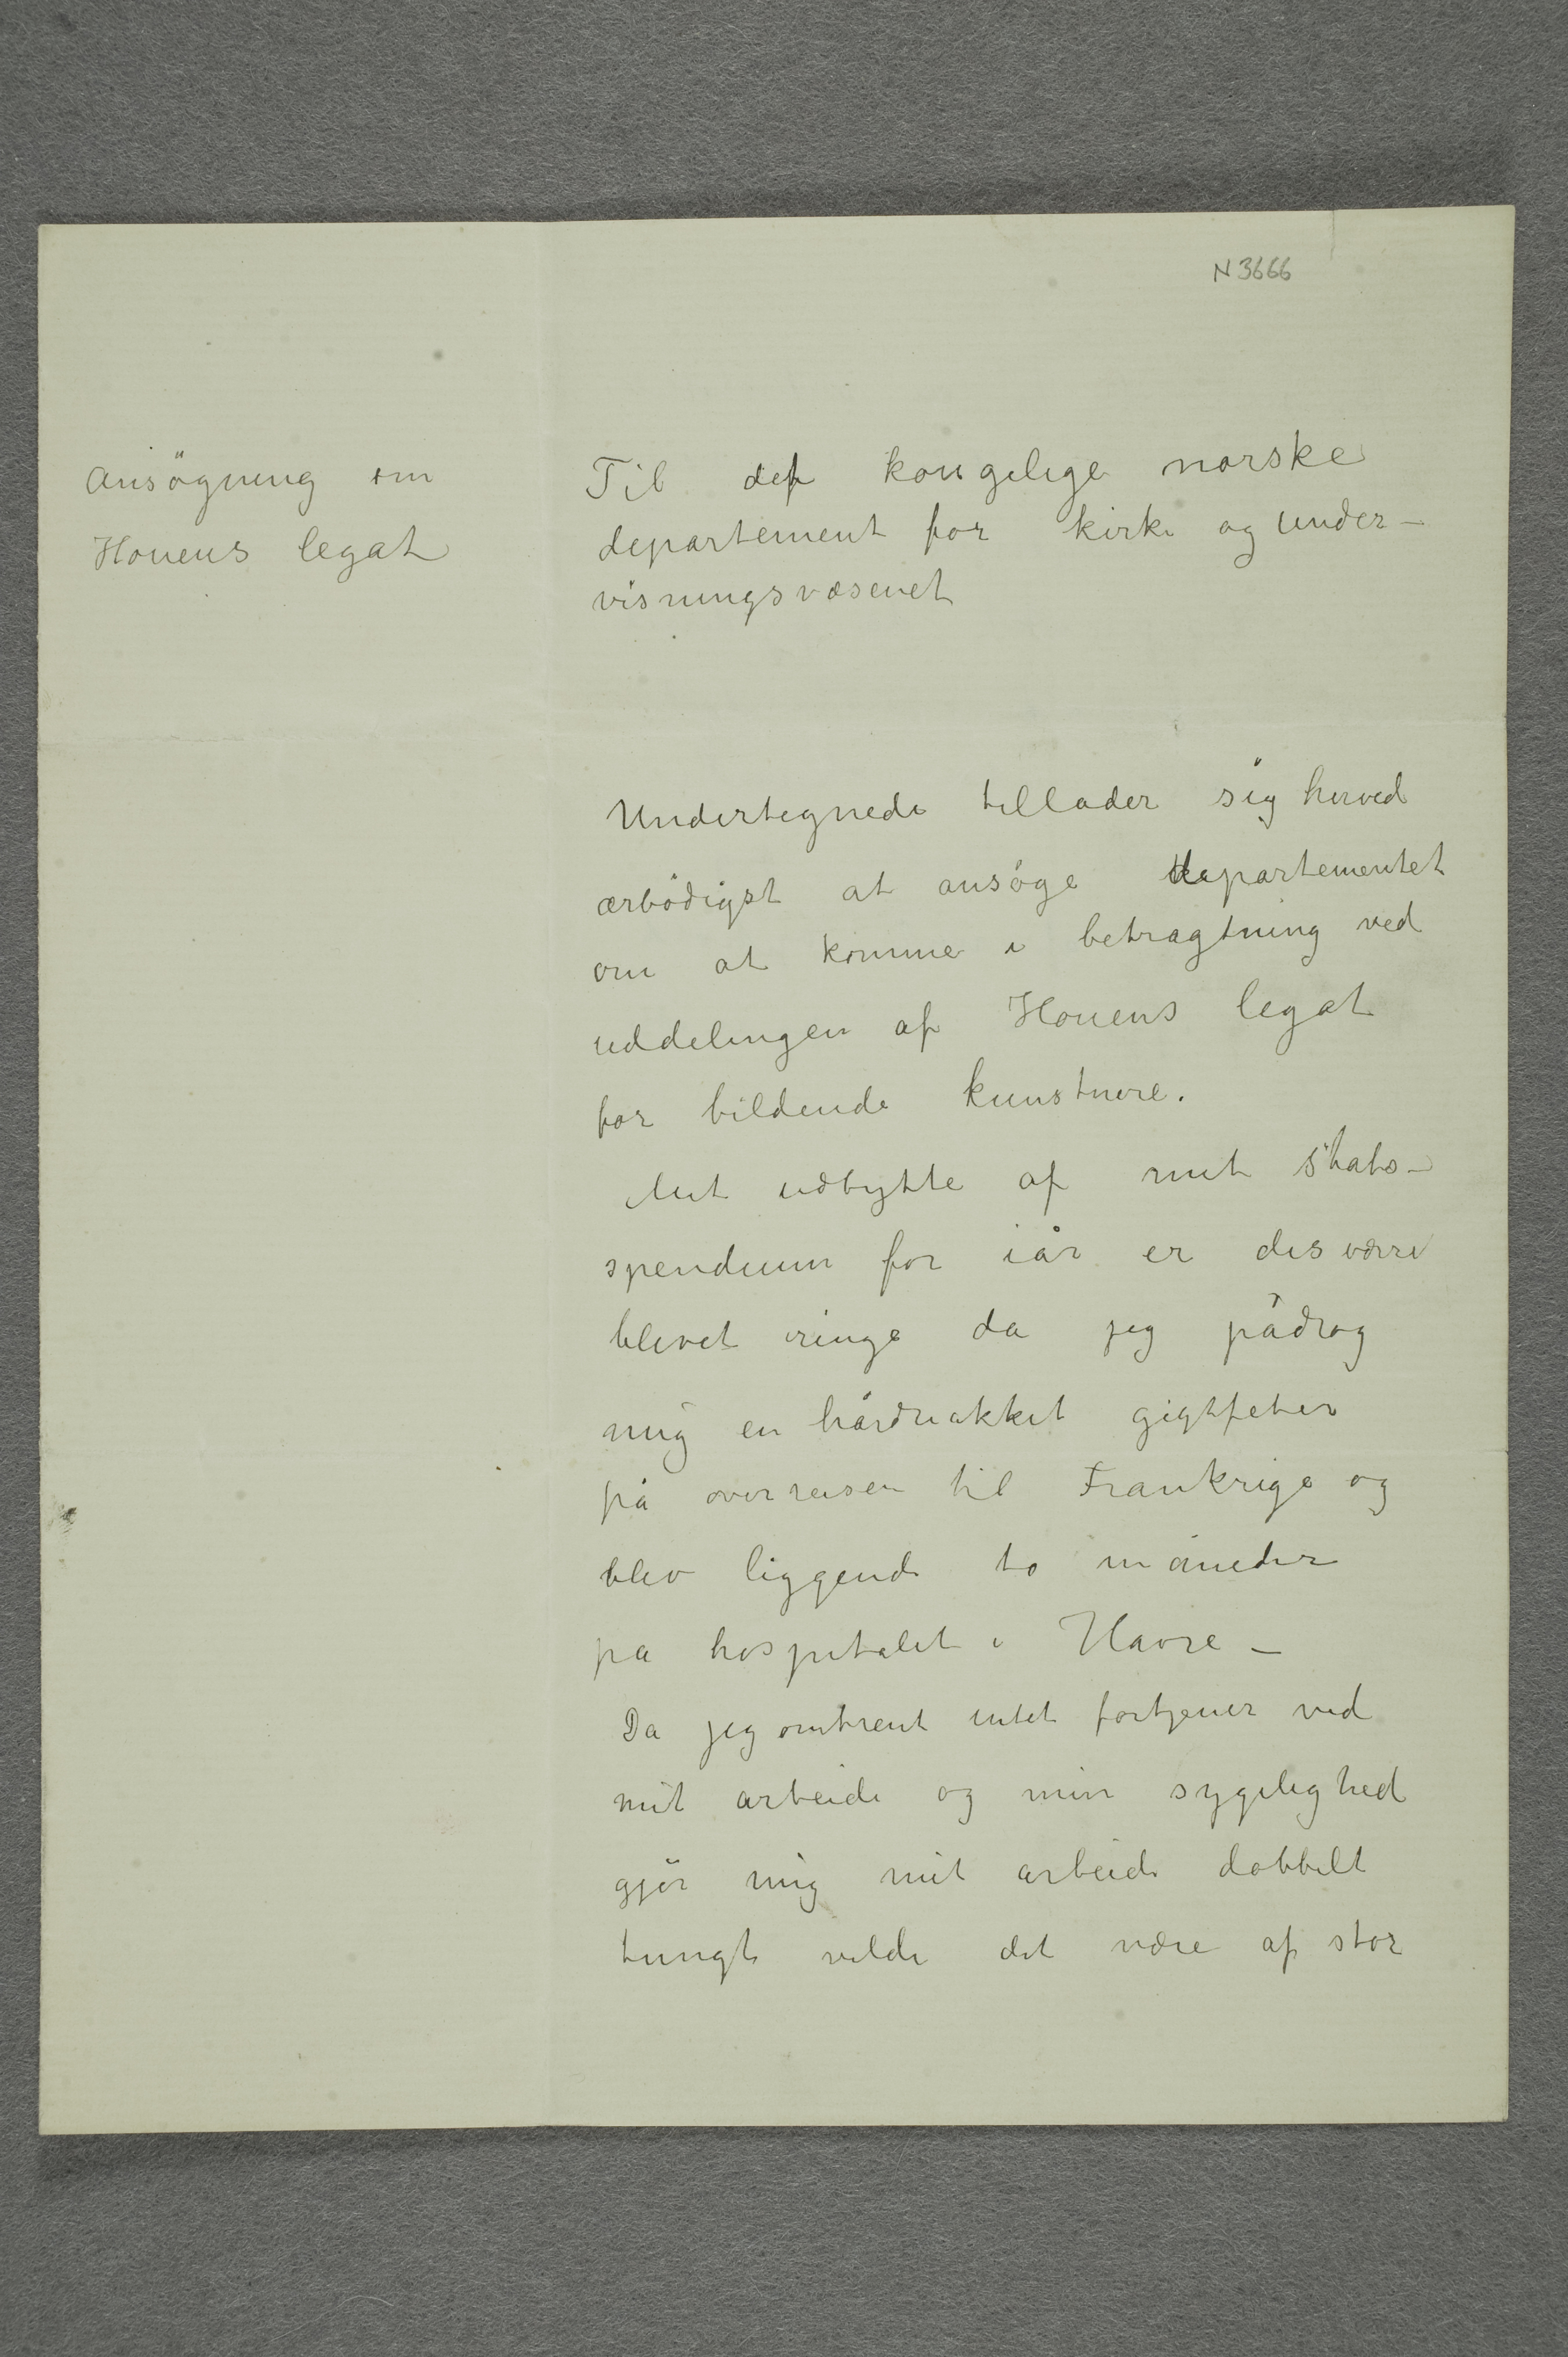 N 3666
Ansögning om
Houens legat
Til det kongelige norske
departement for kirke og under-
visningsvæsenet
Undertegnede tillader sig herved
ærbödigst at ansöge departementet
om at komme i betragtning ved
uddelingen af Houens legat
for bildende kunstnere.
Mit udbytte af mit stats-
spendium for iår er desværre
blevet ringe da jeg pådrog
mig en hårdnakket gigtfeber
på overreisen til Frankrige og
blev liggende to måneder
pa hospitalet i Havre –
Da jeg omtrent intet fortjener ved
mit arbeide og min sygelighed
gjör mig mit arbeide dobbelt
tungt vilde det være af stor